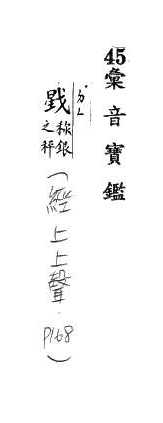 45彙音寶鑑
戥 稱銀之秤（經上上聲．P168）